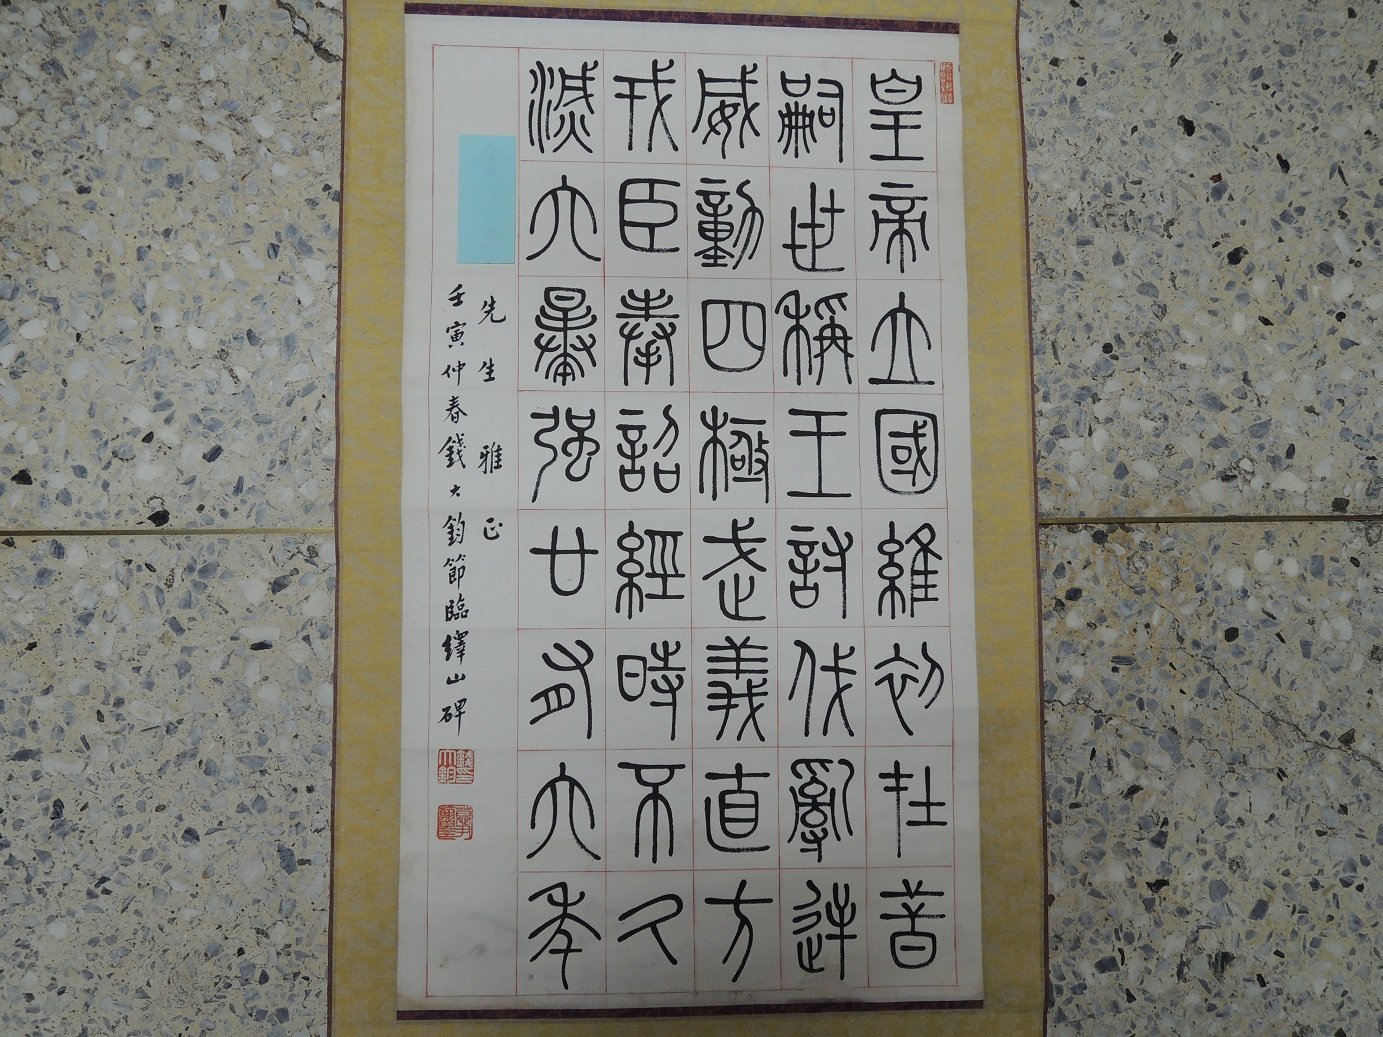 皇帝立國維初在昔
嗣世稱王討伐亂逆
威動四極武義直方
戎臣奉詔經時不久
滅六暴強廿有六年
先生雅正
壬寅仲春錢大鈞節臨繹山碑